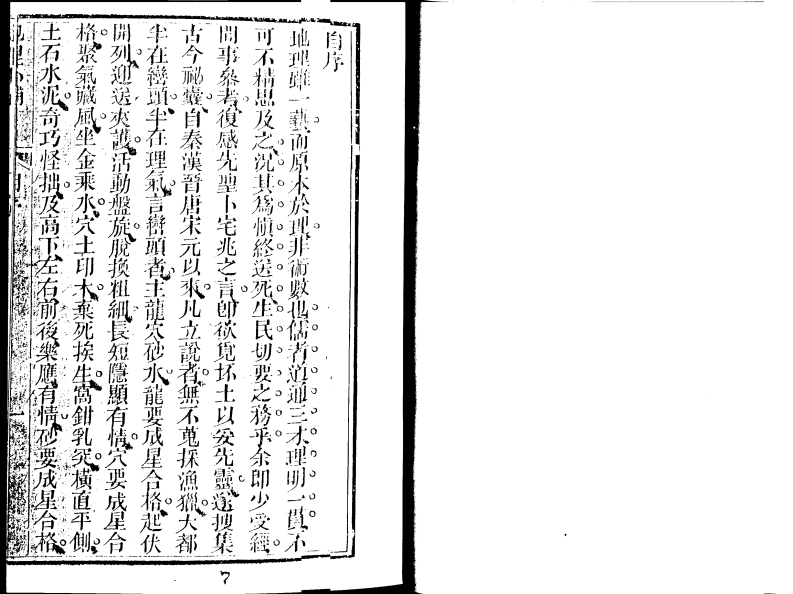 自序
地理雖一藝而原本於理非術數也儒者道通三才理明一貫不
可不精思及之況其爲慎終送死生民切要之務乎余卽少受經
間事參考復感先聖卜宅兆之言卽欲覓坏土以妥先靈遂搜集
古今祕囊自秦漢晉唐宋元以來凡立說者無不蒐採漁獵大都
半在巒頭半在理氣言巒頭者主龍穴砂水龍要成星合格起伏
開列迎送夾護活動盤旋脫換粗細長短隱顯有情穴要成星合
格聚氣藏風坐金乘水穴土印木棄死挨生窩鉗乳突橫直平側
土石水泥奇巧怪拙及高下左右前後樂應有情砂要成星合格
自序
一
7